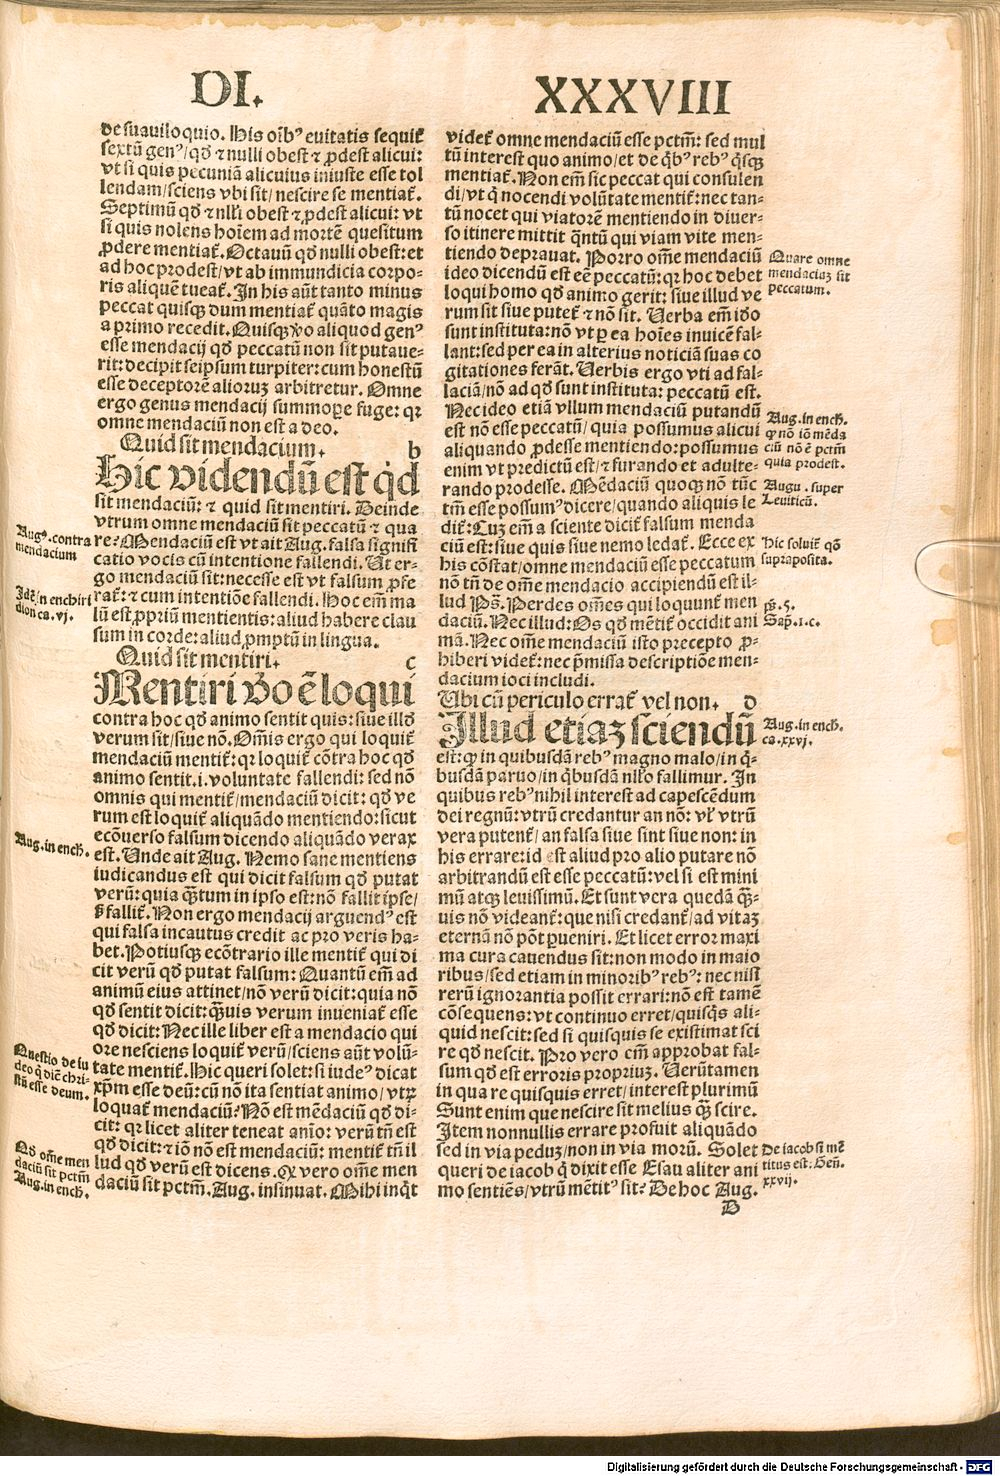 DI. XXXVIII
de suauiloquio. His oı̄bꝰ euitatis sequit᷑
sextū genꝰ/qđ ⁊ nulli obest ⁊ ꝓdest alicui:
vt si quis pecuniā alicuius iniuste esse tol
lendam/sciens vbi sit/nescire se mentiat᷑.
Septimū qđ ⁊ nłłi obest ⁊ ꝓdest alicui: vt
si quis nolens hoīem ad mortē quesitum
ꝓdere mentiat᷑. Octauū qđ nulli obest: et
ad hoc prodest/vt ab immundicia corpo-
ris aliquē tueat᷑. In his aūt tanto minus
peccat quisqꝫ dum mentiat᷑ quāto magis
a primo recedit. Quisqꝫ v̄o aliquod genꝰ
esse mendacij qđ peccatū non sit putaue-
rit: decipit seipsum turpiter: cum honestū
esse deceptorē alioruꝫ arbitretur. Omne
ergo genus mendacij summoꝑe fuge: qꝛ
omne mendaciū non est a deo.
Quid sit mendacium. b
Hic videndū est q̇d
sit mendaciū: ⁊ quid sit mentiri. Deinde
vtrum omne mendaciū sit peccatū ⁊ qua
re? Mendaciū est vt ait Aug. falsa signifi
catio vocis cū intentione fallendi. Ut er-
go mendaciū sit: necesse est vt falsum ꝓfe
rat᷑: ⁊ cum intentiōe fallendi. Hoc em̄ ma
lū est ꝓpriū mentientis: aliud habere clau
sum in corde: aliud ꝓmptū in lingua.
Quid sit mentiri. c
Mentiri v̄o ē loqui
contra hoc qđ animo sentit quis: siue illđ
verum sit/siue nō. Om̄is ergo qui loquit᷑
mendaciū mentit᷑: qꝛ loquit᷑ cōtra hoc qđ
animo sentit.i. voluntate fallendi: sed nō
omnis qui mentit᷑/mendaciū dicit: qđ ve
rum est loquit᷑ aliquādo mentiendo: sicut
ecōuerso falsum dicendo aliquādo verax
est. Unde ait Aug. Nemo sane mentiens
iudicandus est qui dicit falsum qđ putat
verū: quia q̄ꝫtum in ipso est: nō fallit ipse/
s̄ fallit᷑. Non ergo mendacij arguendꝰ est
qui falsa incautus credit ac pro veris ha-
bet. Potiusqꝫ ecōtrario ille mentit᷑ qui di
cit verū qđ putat falsum: Quantū em̄ ad
animū eius attinet/nō verū dicit: quia nō
qđ sentit dicit: q̄ꝫuis verum inueniat᷑ esse
qđ dicit: Nec ille liber est a mendacio qui
ore nesciens loquit᷑ verū/sciens aūt volū-
tate mentit᷑. Hic queri solet: si iudeꝰ dicat
xp̄m esse deū: cū nō ita sentiat animo/vtꝝ
loquat᷑ mendaciū? Nō est mēdaciū qđ di-
cit: qꝛ licet aliter teneat anīo: verū tn̄ est
qđ dicit: ⁊ iō nō est mendaciū: mentit᷑ tn̄ il
lud qđ verū est dicens. Qꝫ vero om̄e men
daciū sit pctm̄. Aug. insinuat. Mihi inq̇t
Augꝰ. contra
mendacium
Idē/n enchiri
dion ca. vj.
Aug. in ench.
Questio de iu
deo q̇ diē chri-
stū esse deum.
Qđ om̄e men
daciū sit pctm̄
Aug. in ench.
videt᷑ omne mendaciū esse pctm̄: sed mul
tū interest quo animo/et de q̇bꝰ rebꝰ q̇sqꝫ
mentiat᷑. Non em̄ sic peccat qui consulen
di/vt q̇ nocendi volūtate mentit᷑: nec tan-
tū nocet qui viatorē mentiendo in diuer-
so itinere mittit q̄ntū qui viam vite men-
tiendo deprauat. Porro om̄e mendaciū
ideo dicendū est eē peccatū: qꝛ hoc debet
loqui homo qđ animo gerit: siue illud ve
rum sit siue putet᷑ ⁊ nō sit. Uerba em̄ iđo
sunt instituta: nō vt ꝑ ea hoīes inuicē fal-
lant: sed per ea in alterius noticiā suas co
gitationes ferāt. Uerbis ergo vti ad fal-
laciā/nō ad qđ sunt instituta: peccatū est.
Nec ideo etiā vllum mendaciū putandū
est nō esse peccatū/quia possumus alicui
aliquando ꝓdesse mentiendo: possumus
enim vt predictū est/⁊ furando et adulte-
rando prodesse. Mēdaciū quoqꝫ nō tūc
tm̄ esse possumꝰ dicere/quando aliquis le
dit᷑: Cuꝫ em̄ a sciente dicit᷑ falsum menda
ciū est: siue quis siue nemo ledat᷑. Ecce ex
his cōstat/omne mendaciū esse peccatum
nō tn̄ de om̄e mendacio accipiendū est il-
lud Ps̄. Perdes om̄es qui loquunt᷑ men
daciū. Nec illud: Os qđ mētit᷑ occidit ani
mā. Nec om̄e mendaciū isto precepto ꝓ-
hiberi videt᷑: nec p̄missa descriptiōe men-
dacium ioci includi.
Ubi cū periculo errat᷑ vel non. d
Illud etiaꝫ sciendū
est: ꝙ in quibusdā rebꝰ magno malo/in q̇-
busdā paruo/in q̇busdā nłło fallimur. In
quibus rebꝰ nihil interest ad capescēdum
dei regnū: vtrū credantur an nō: vł vtrū
vera putent᷑/an falsa siue sint siue non: in
his errare: id est aliud pro alio putare nō
arbitrandū est esse peccatū: vel si est mini
mū atqꝫ leuissimū. Et sunt vera quedā q̄ꝫ-
uis nō videant᷑: que nisi credant᷑/ad vitaꝫ
eternā nō pōt ꝑueniri. Et licet error maxi
ma cura cauendus sit: non modo in maio
ribus/sed etiam in minoribꝰ rebꝰ: nec nisi
rerū ignorantia possit errari: nō est tamē
cōsequens: vt continuo erret/quisq̇s ali-
quid nescit: sed si quisquis se existimat sci
re qđ nescit. Pro vero em̄ approbat fal-
sum qđ est erroris propriuꝫ. Uerūtamen
in qua re quisquis erret/interest plurimū
Sunt enim que nescire sit melius q̄ꝫ scire.
Item nonnullis errare profuit aliquādo
sed in via peduꝫ/non in via morū. Solet
queri de iacob q̇ dixit esse Esau aliter ani
mo sentiēs/vtrū mētitꝰ sit? De hoc Aug.
D
Quare omne
mendaciuꝫ sit
peccatum.
Aug. in ench.
ꝙ nō iō mēda
ciū nō ē pctm̄
quia prodest.
Augu. super
Leuiticū.
Hic soluit᷑ qō
supraposita.
ps̄. 5.
Sap̄. 1. c.
Aug. in ench.
ca. xxvj.
De iacob si mē
titus est. Geñ.
xxvij.
Digitalisierung gefördert durch die Deutsche Forschungsgemeinschaft - DFG